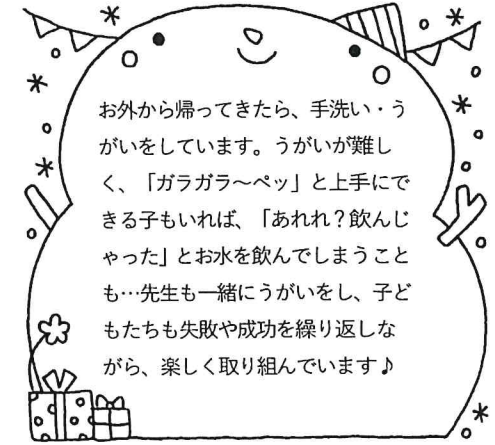 お外から帰ってきたら、手洗い・う
がいをしています。うがいが難し
く、「ガラガラ～ペッ」と上手にで
きる子もいれば、「あれれ？飲んじ
ゃった」とお水を飲んでしまうこと
も…先生も一緒にうがいをし、子ど
もたちも失敗や成功を繰り返しな
がら、楽しく取り組んでいます♪